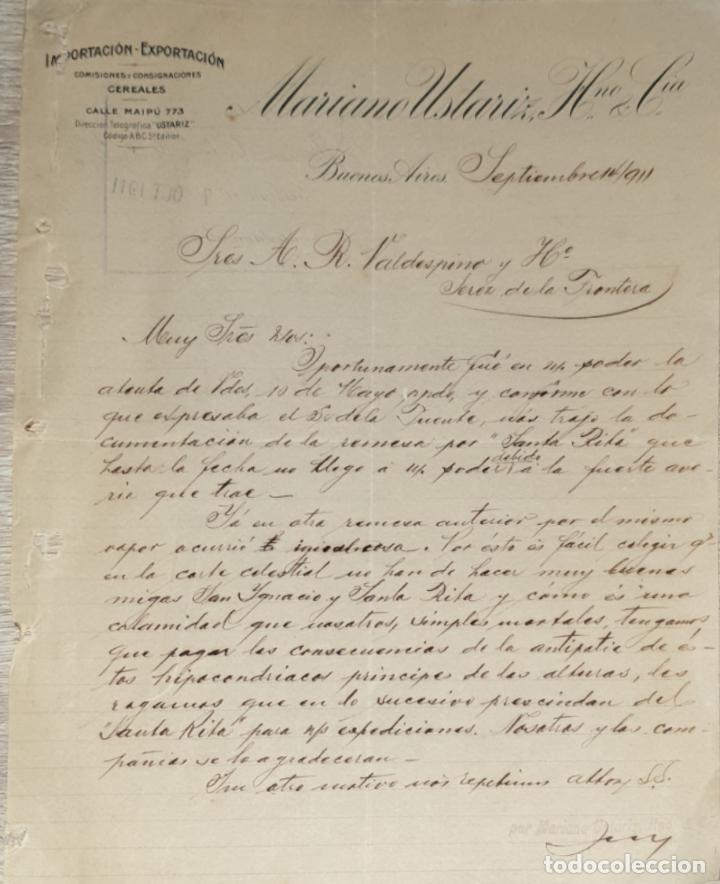 IMPORTACIÓN - EXPORTACIÓN
COMISIONES Y CONSIGNACIONES
CEREALES
CALLE MAIPÚ 773
Dirección Telegráfica "USTARIZ"
Código A.B.C. 5ª Edición
Mariano Ustariz, Hno & Cia
Buenos Aires, Septiembre 14/911
Sres A. R. Valdespino y Hº
Jerez de la Frontera
Muy Sres
Oportunamente fué en n/ poder la
atenta de Vdes, 10 de Mayo ppdo, y conforme con lo
que expresaba el Sr de la Puente, nos trajo la do-
cumentación de la remesa por "Santa Rita" que
hasta la fecha no llego á n/ poder debido á la fuerte ave-
ria que trae —
Yá en otra remesa anterior por el mismo
vapor ocurrió igual cosa. Por ésto és fácil colegir q'
en la corte celestial no han de hacer muy buenas
migas San Ignacio y Santa Rita y como és una
calamidad que nosotros, simples mortales, tengamos
que pagar las consecuencias de la antipatia de és-
tos hipocondriacos principes de las alturas, les
rogamos que en lo sucesivo prescindan del
"Santa Rita" para n/s expediciones. Nosotros y las com-
pañias se lo agradeceran —
Sin otro motivo nos repetimos attos SS.
por Mariano
todocoleccion